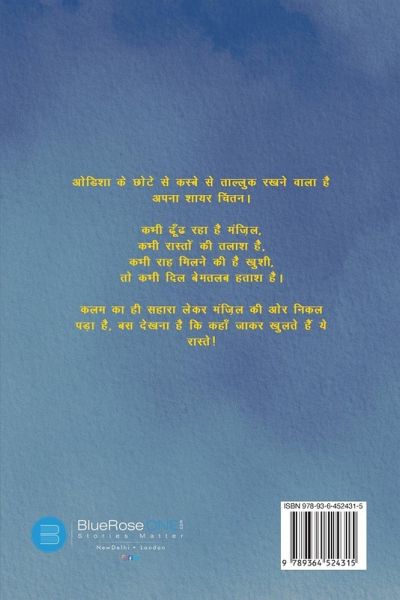 ओडिशा के छोटे से कस्बे से ताल्लुक रखने वाला है
अपना शायर चिंतन।
कभी ढूँढ रहा है मंज़िल,
कभी रास्तों की तलाश है,
कभी राह मिलने की है खुशी,
तो कभी दिल बेमतलब हताश है।
कलम का ही सहारा लेकर मंज़िल की ओर निकल
पड़ा है, बस देखना है कि कहाँ जाकर खुलते हैं ये
रास्ते!
BlueRose ONE
Stories Matter
NewDelhi • London
ISBN 978-93-6-452431-5
9 789364 524315